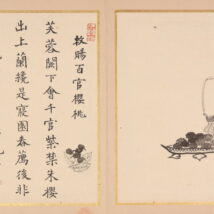 敕賜百官櫻桃
芙蓉闕下會千官紫禁朱櫻
出上蘭纔是寢園春薦後非